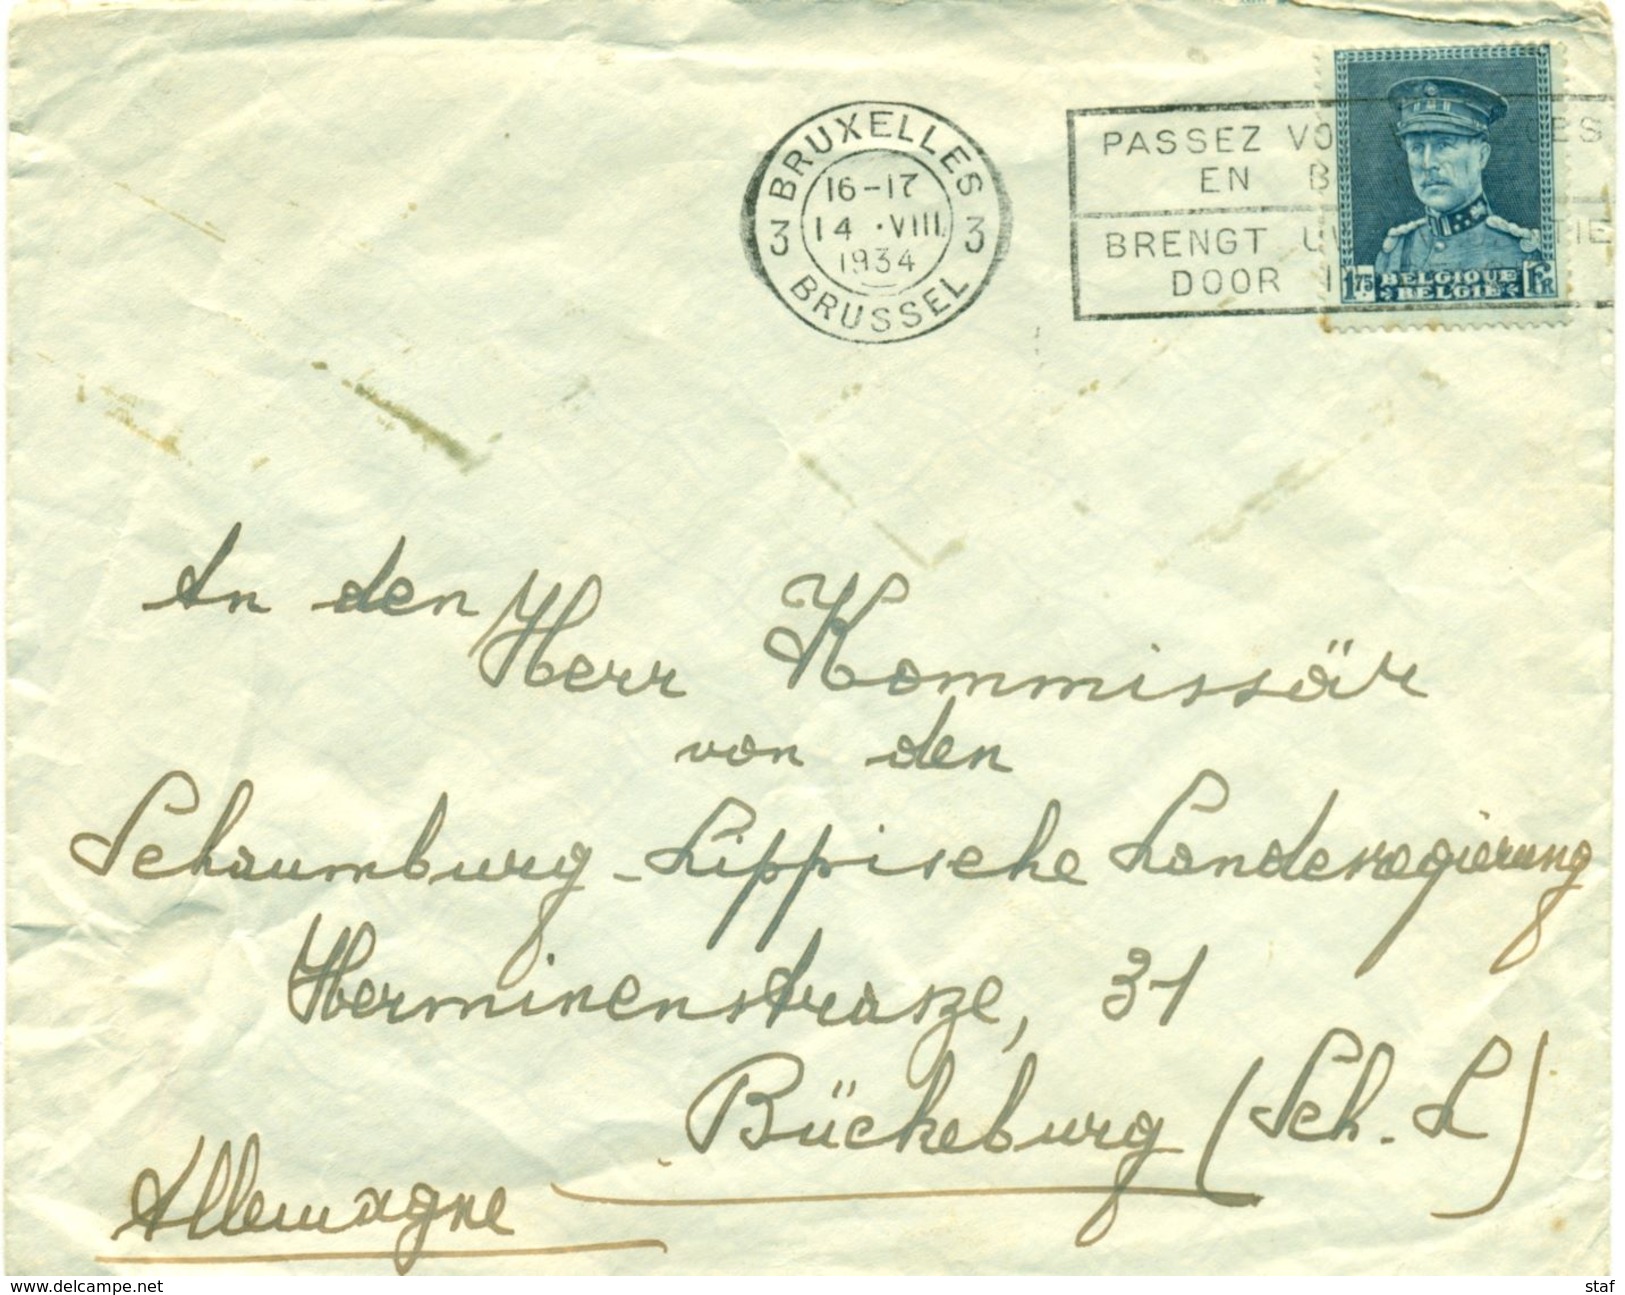 BRUXELLES
3 16-17 3
14 · VIII.
1934
BRUSSEL
PASSEZ VO
EN B
BRENGT U
DOOR I
1.75 BELGIQUE FR
BELGIE
An den
Herr Kommissär
von den
Schaumburg-Lippische Landesregierung
Herminenstrasze, 31
Bückeburg (Sch. L)
Allemagne
www.delcampe.net
staf